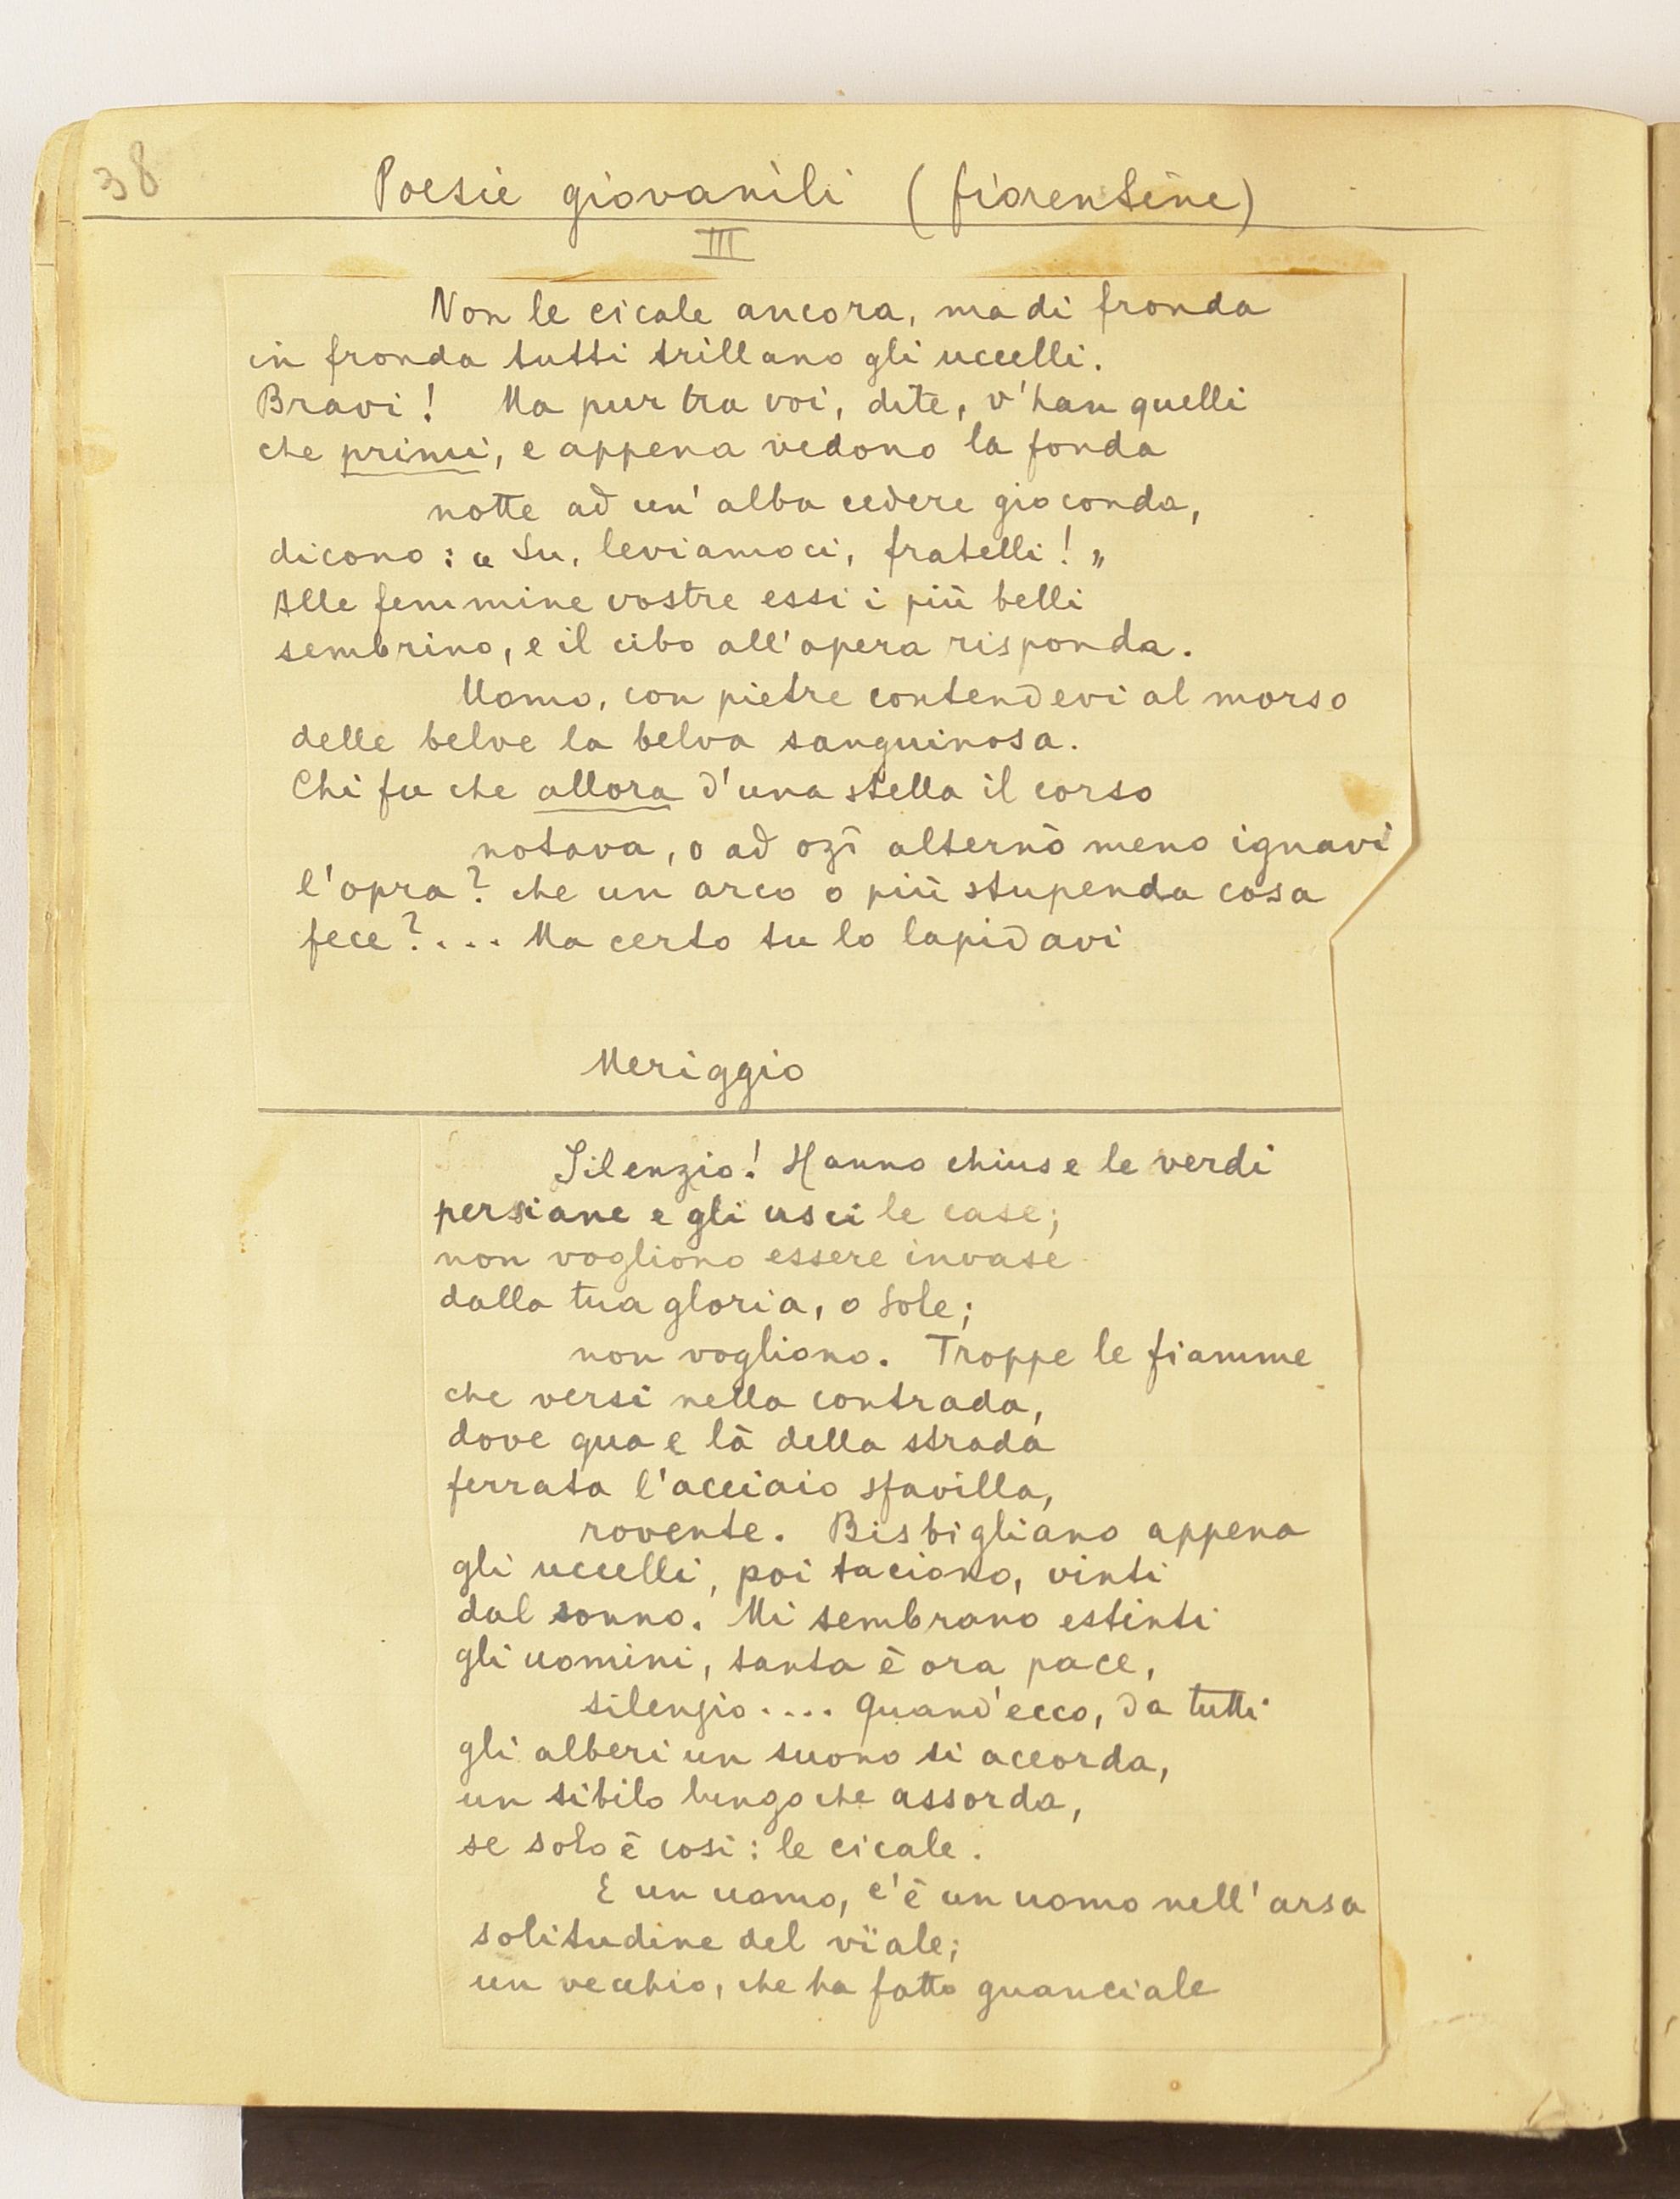 38
Poesie giovanili (fiorentine)
III
Non le cicale ancora, ma di fronda
in fronda tutti trillano gli uccelli.
Bravi! Ma pur tra voi, dite, v'han quelli
che primi, e appena vedono la fonda
notte ad un'alba cedere gioconda,
dicono: « Su, leviamoci, fratelli! »
Alle femmine vostre essi i più belli
sembrino, e il cibo all'opera risponda.
Uomo, con pietre contendevi al morso
delle belve la belva sanguinosa.
Chi fu che allora d'una stella il corso
notava, o ad ozî alternò meno ignavi
l'opra? che un arco o più stupenda cosa
fece?... Ma certo tu lo lapidavi
Meriggio
Silenzio! Hanno chiuse le verdi
persiane e gli usci le case;
non vogliono essere invase
dalla tua gloria, o Sole;
non vogliono. Troppe le fiamme
che versi nella contrada,
dove qua e là della strada
ferrata l'acciaio sfavilla,
rovente. Bisbigliano appena
gli uccelli, poi taciono, vinti
dal sonno. Mi sembrano estinti
gli uomini, tanta è ora pace,
silenzio.... Quand'ecco, da tutti
gli alberi un suono si accorda,
un sibilo lungo che assorda,
se solo è così: le cicale.
E un uomo, c'è un uomo nell'arsa
solitudine del vïale;
un vecchio, che ha fatto guanciale